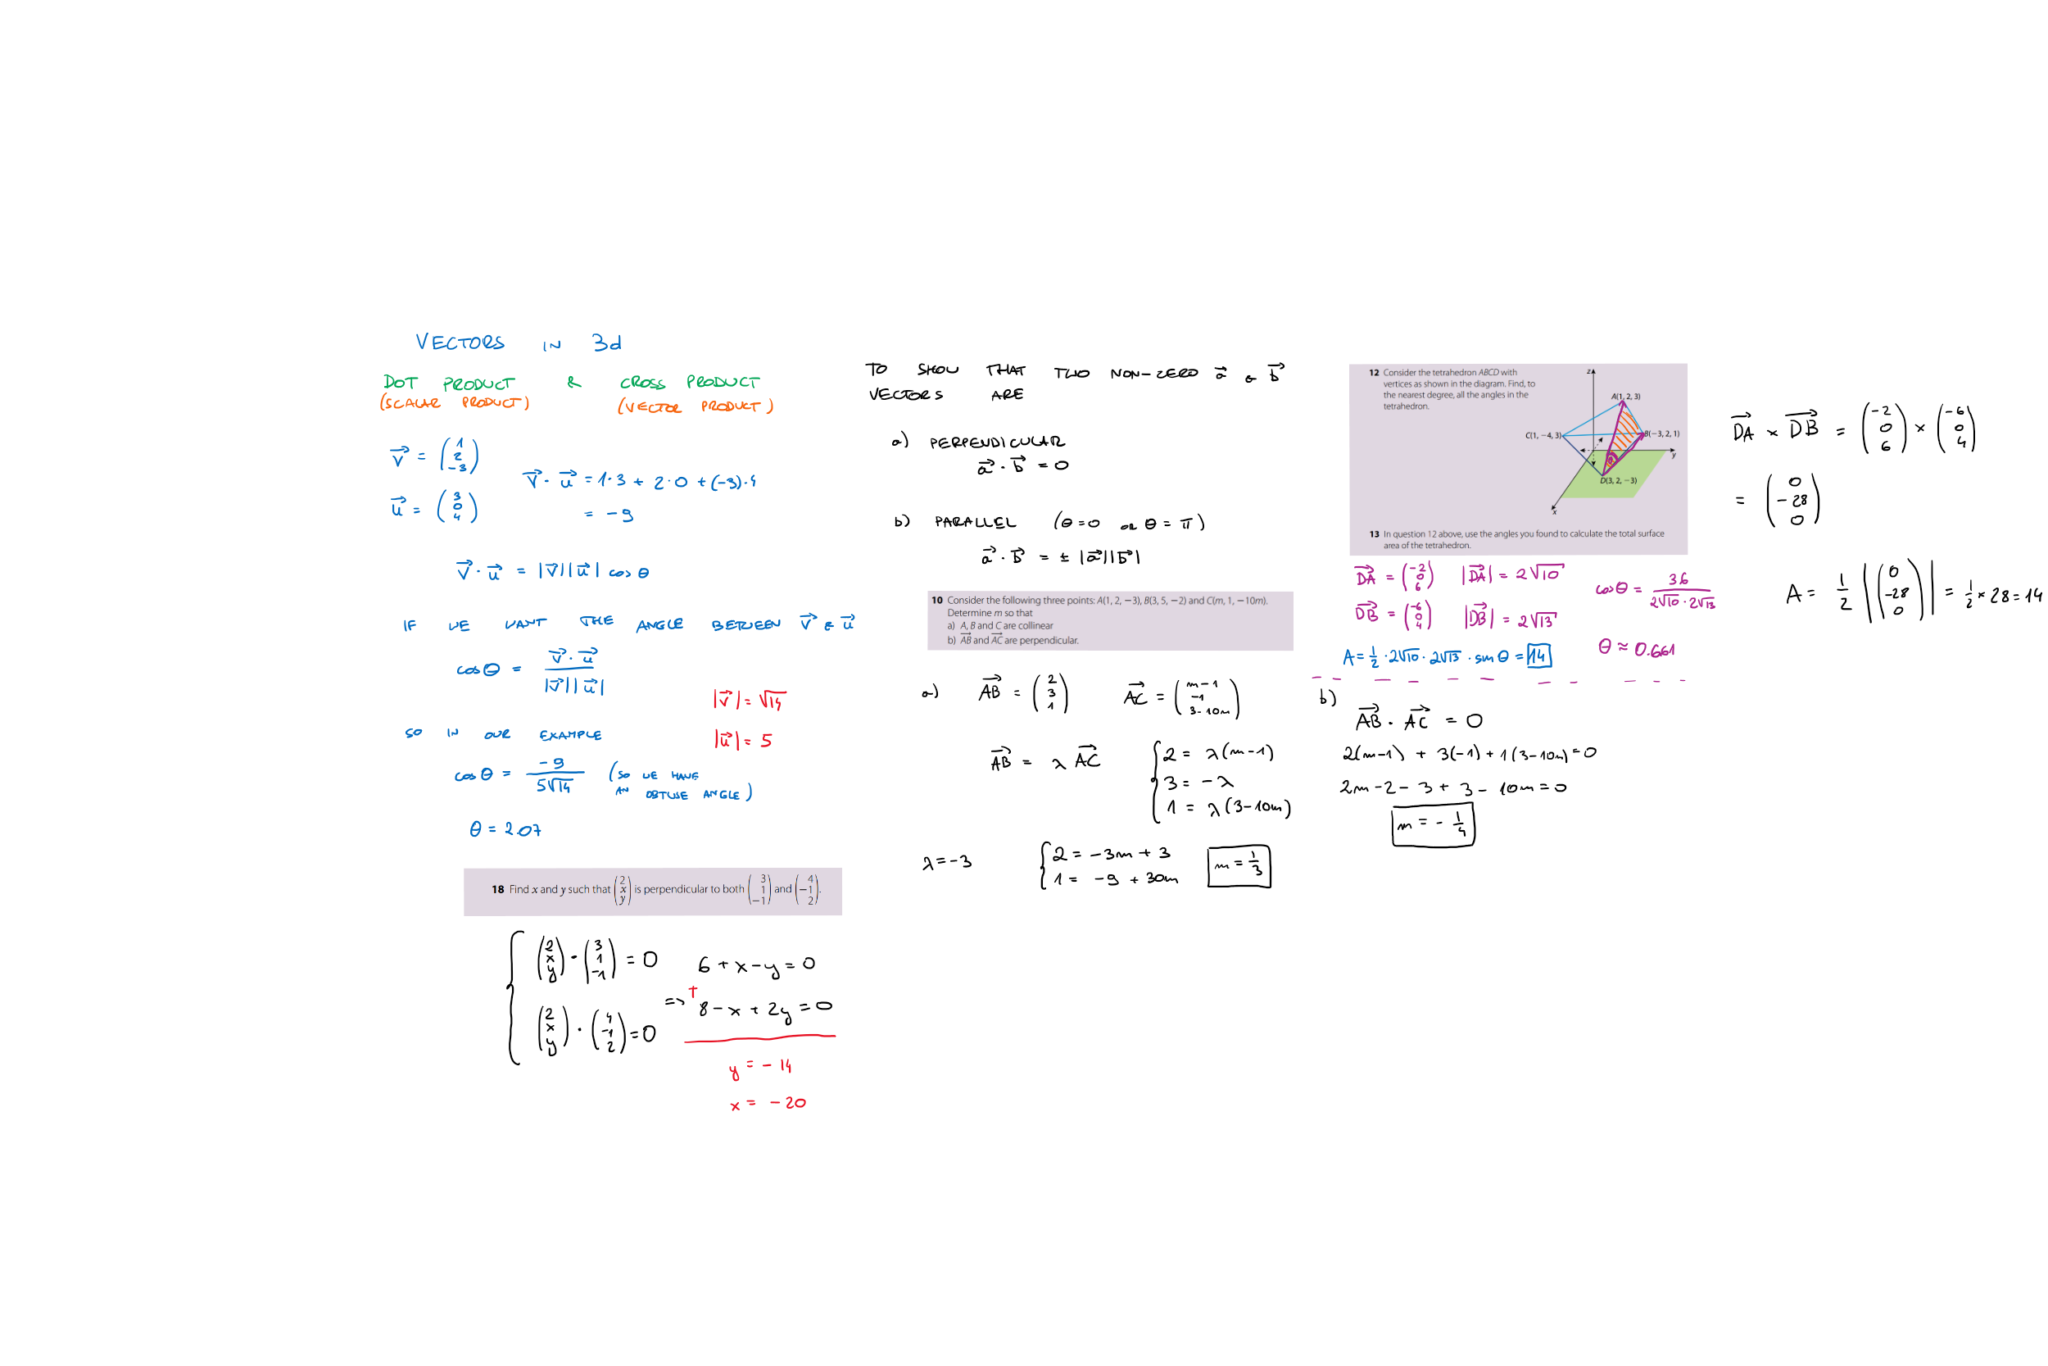 VECTORS IN 3d
DOT PRODUCT & CROSS PRODUCT
(SCALAR PRODUCT) (VECTOR PRODUCT)
v⃗ = (1 2 -3)
v⃗ · u⃗ = 1·3 + 2·0 + (-3)·4
u⃗ = (3 0 4)
= -9
v⃗ · u⃗ = |v⃗||u⃗| cos θ
IF WE WANT THE ANGLE BETWEEN v⃗ & u⃗
cos θ = v⃗ · u⃗ / |v⃗||u⃗|
|v⃗| = √14
|u⃗| = 5
SO IN OUR EXAMPLE
cos θ = -9 / 5√14 (SO WE HAVE
AN OBTUSE ANGLE)
θ = 2.07
18 Find x and y such that (2 x y) is perpendicular to both (3 1 −1) and (4 −1 2).
(2 x y) · (3 1 -1) = 0
6 + x - y = 0
(2 x y) · (4 -1 2) = 0
=> + 8 - x + 2y = 0
y = -14
x = -20
TO SHOW THAT TWO NON-ZERO a⃗ & b⃗
VECTORS ARE
a) PERPENDICULAR
a⃗ · b⃗ = 0
b) PARALLEL (θ = 0 OR θ = π)
a⃗ · b⃗ = ± |a⃗||b⃗|
10 Consider the following three points: A(1, 2, −3), B(3, 5, −2) and C(m, 1, −10m).
Determine m so that
a) A, B and C are collinear
b) AB⃗ and AC⃗ are perpendicular.
a) AB⃗ = (2 3 1) AC⃗ = (m-1 -1 3-10m)
AB⃗ = λ AC⃗
2 = λ(m-1)
3 = -λ
1 = λ(3-10m)
λ = -3
2 = -3m + 3
1 = -9 + 30m
m = 1/3
12 Consider the tetrahedron ABCD with
vertices as shown in the diagram. Find, to
the nearest degree, all the angles in the
tetrahedron.
z
A(1, 2, 3)
C(1, −4, 3)
B(−3, 2, 1)
y
D(3, 2, −3)
x
13 In question 12 above, use the angles you found to calculate the total surface
area of the tetrahedron.
DA⃗ = (-2 0 6) |DA⃗| = 2√10
cos θ = 36 / 2√10 · 2√13
DB⃗ = (-6 0 4) |DB⃗| = 2√13
θ ≈ 0.661
A = 1/2 · 2√10 · 2√13 · sin θ = 14
b)
AB⃗ · AC⃗ = 0
2(m-1) + 3(-1) + 1(3-10m) = 0
2m - 2 - 3 + 3 - 10m = 0
m = - 1/4
DA⃗ × DB⃗ = (-2 0 6) × (-6 0 4)
= (0 -28 0)
A = 1/2 |(0 -28 0)| = 1/2 × 28 = 14